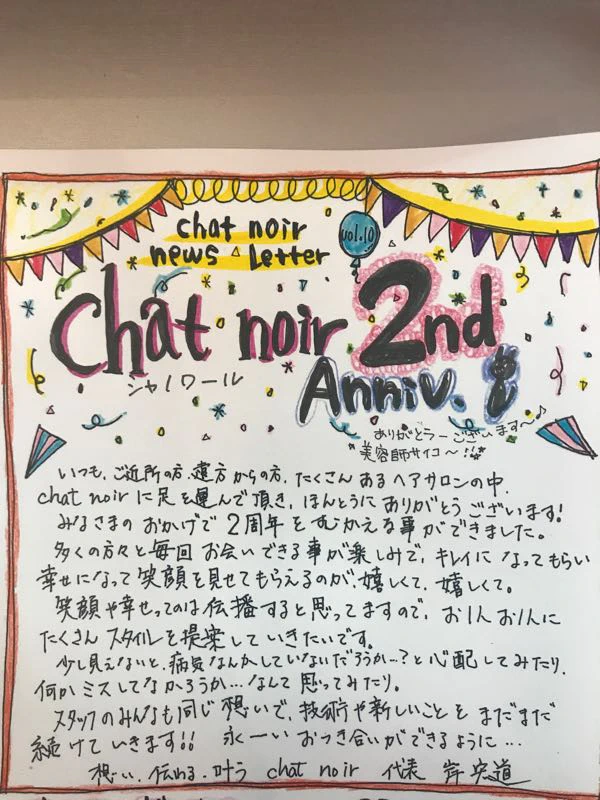 chat noir
news letter
vol.10
chat noir 2nd
シャノワール
Anniv.
ありがとうーございます〜♪
"美容師サイコ〜!!"
いつも、ご近所の方、遠方からの方、たくさんあるヘアサロンの中、
chat noirに足を運んで頂き、ほんとうにありがとうございます!
みなさまのおかげで2周年をむかえる事ができました。
多くの方々と毎回お会いできる事が楽しみで、キレイになってもらい
幸せになって笑顔を見せてもらえるのが、嬉しくて、嬉しくて。
笑顔や幸せってのは伝播すると思ってますので、お1人お1人に
たくさんスタイルを提案していきたいです。
少し見えないと、病気なんかしていないだろうか…?と心配してみたり、
何かミスしてなかろうか…なんて思ってみたり。
スタッフのみんなも同じ想いで、技術や新しいことをまだまだ
続けていきます!! 永ーいおつき合いができるように…
想い、伝わる、叶う chat noir 代表 岸